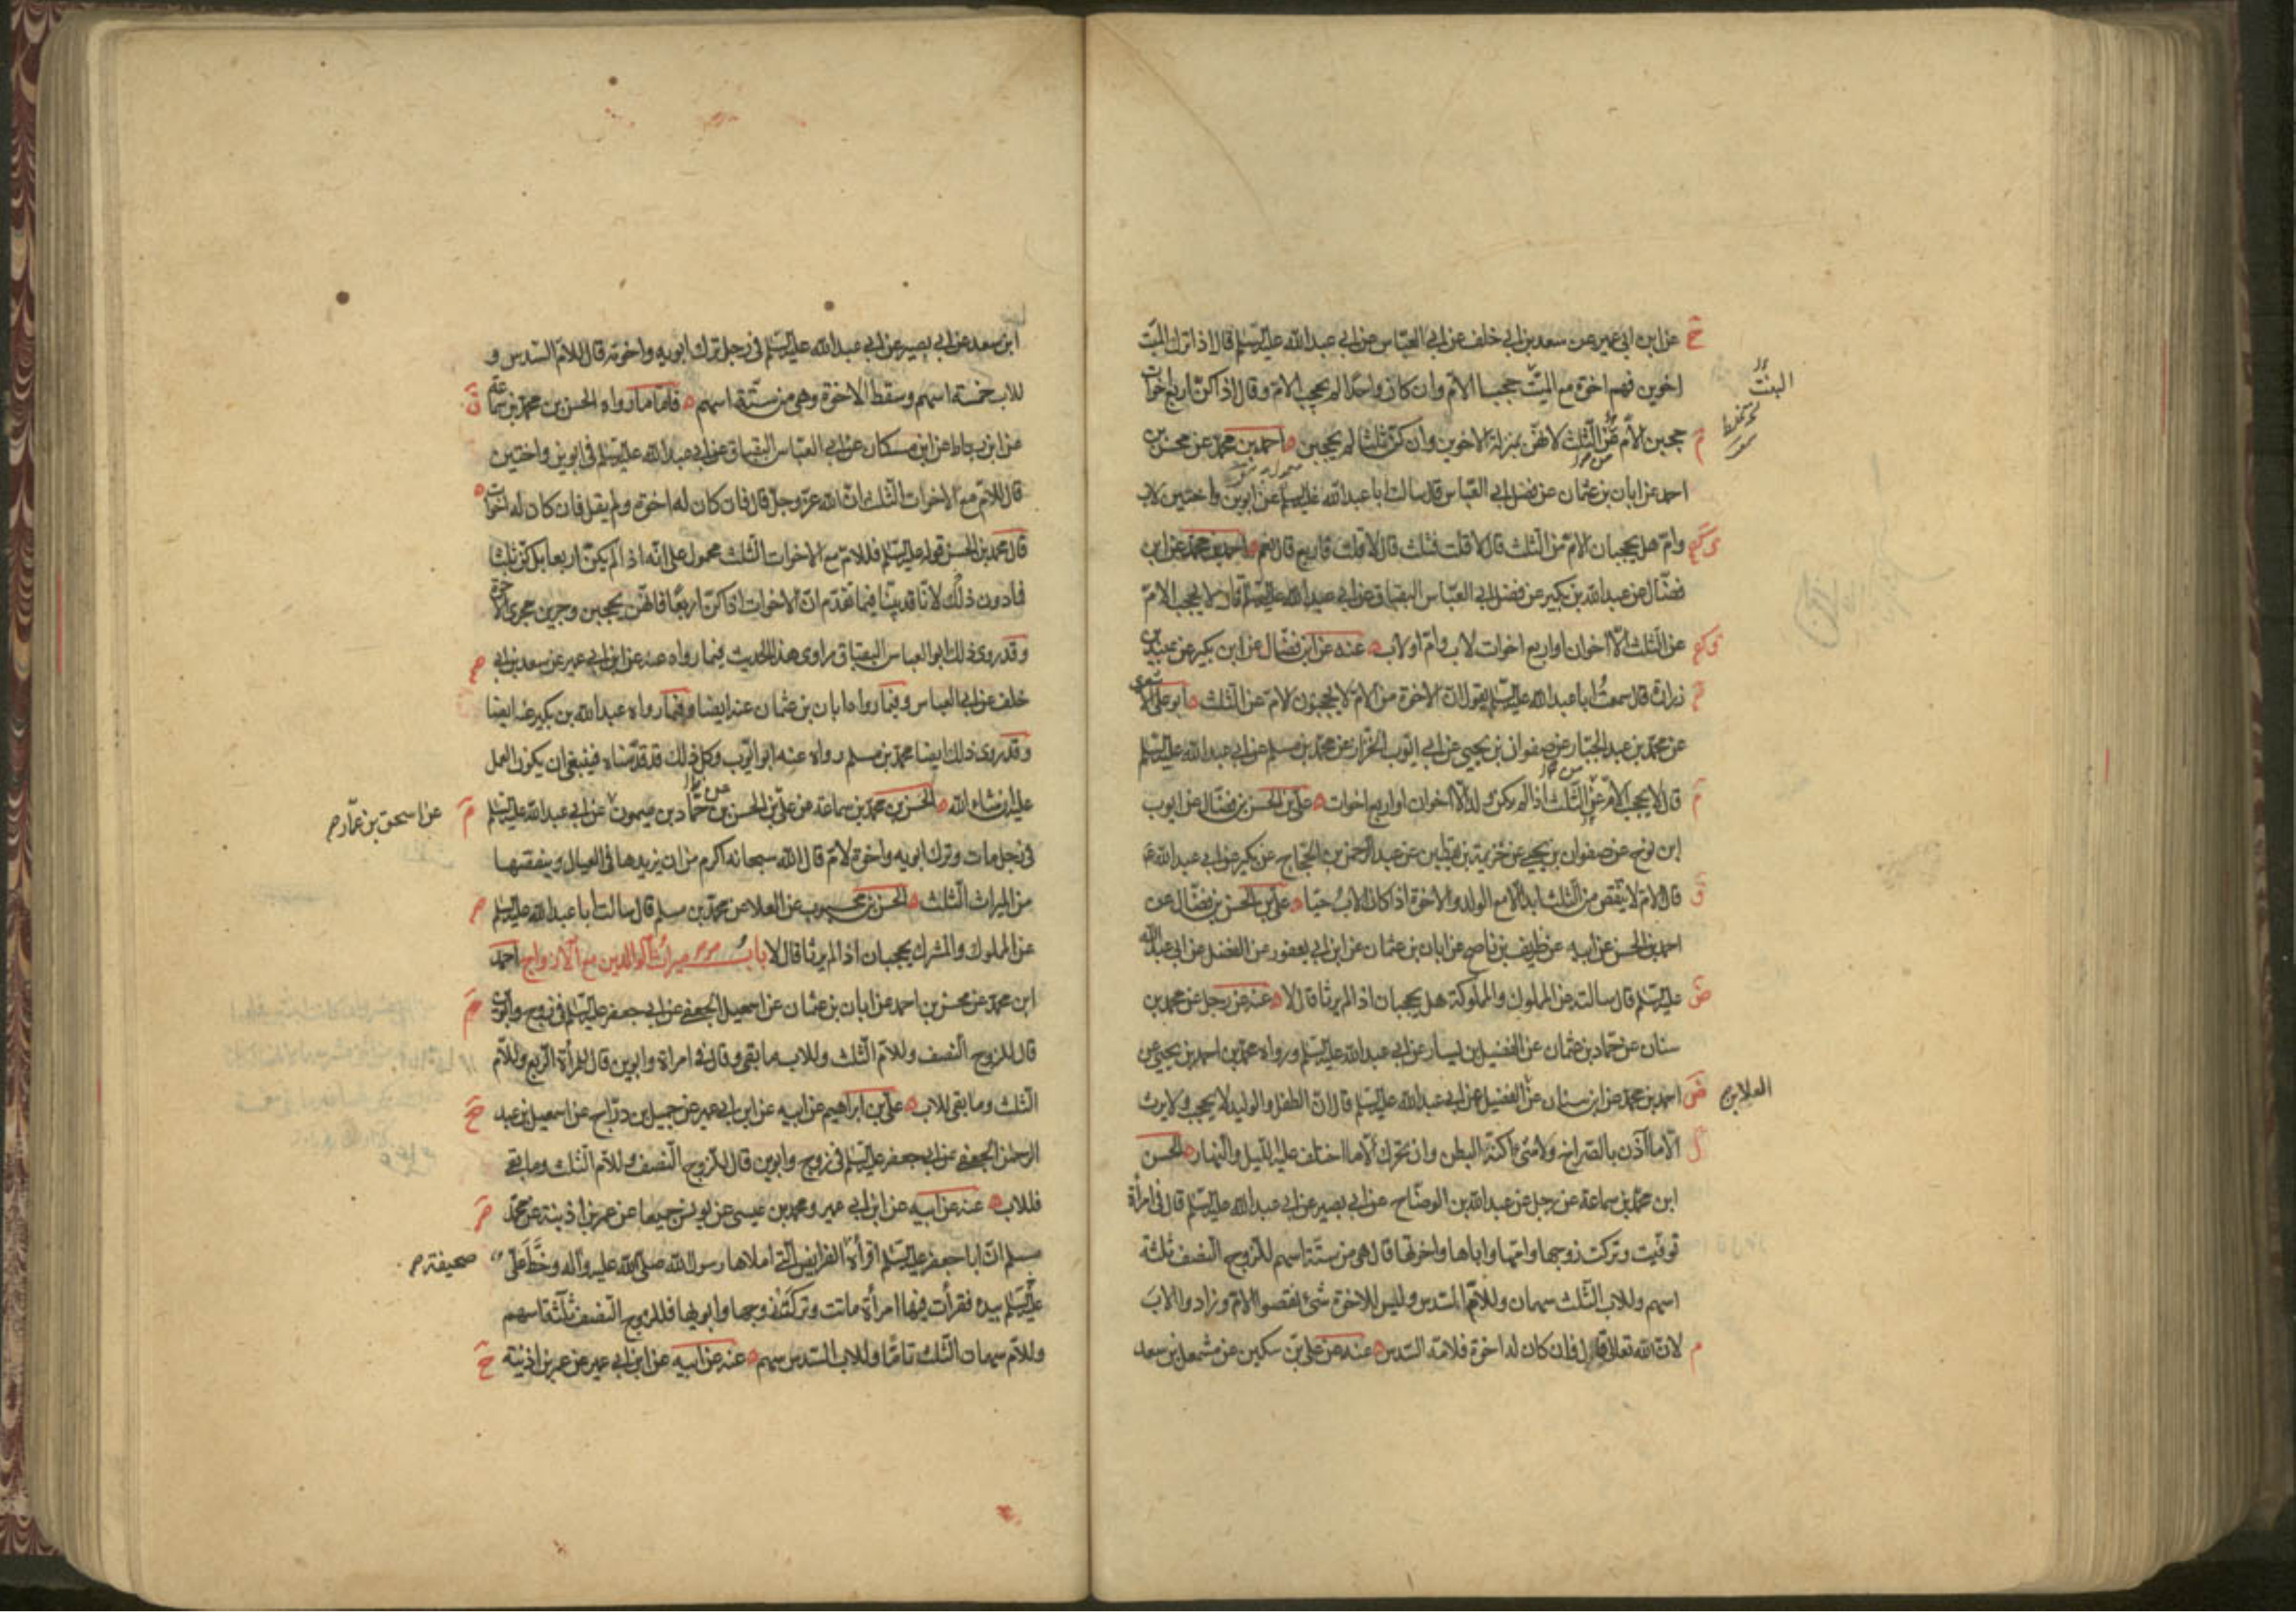 عن ابن ابي عمير عن سعد بن ابي خلف عن ابي العباس عن ابي عبد الله عليه السلم قال اذا ترك الميت
اخوين فهم اخوة مع الميت حجبا الام وان كان واحدا لم يحجب الام وقال اذا كن اربع اخوات
البنت
حجبن الام من الثلث لانهن بمنزلة الاخوين وان كن ثلثا لم يحجبن احمد بن محمد عن محسن بن
احمد عن ابان بن عثمان عن فضل ابي العباس قال سالت ابا عبد الله عليه السلم عن ابوين واختين لاب
وام هل يحجبان الام من الثلث قال لا قلت فثلث قال لا قلت فاربع قال نعم احمد بن محمد عن ابن
فضال عن عبد الله بن بكير عن فضل ابي العباس البقباق عن ابي عبد الله عليه السلم قال لا يحجب الام
عن الثلث الا اخوان او اربع اخوات لاب وام او لاب عنه عن ابن فضال عن ابن بكير عن عبيد بن
زرارة قال سمعت ابا عبد الله عليه السلم يقول ان الاخوة من الام لا يحجبون الام عن الثلث ابو علي الاشعري
عن محمد بن عبد الجبار عن صفوان بن يحيى عن ابي ايوب الخزاز عن محمد بن مسلم عن ابي عبد الله عليه السلم
قال لا يحجب الام عن الثلث اذا لم يكن ولد الا اخوان او اربع اخوات علي بن الحسن بن فضال عن ايوب
ابن نوح عن صفوان بن يحيى عن خزيمة بن يقطين عن عبد الرحمن بن الحجاج عن بكير عن ابي عبد الله ع
قال الام لا تنقص من الثلث ابدا الا مع الولد والاخوة اذا كان الاب حيا علي بن الحسن بن فضال عن
احمد بن الحسن عن ابيه عن ظريف بن ناصح عن ابان بن عثمان عن ابن ابي يعفور عن الفضل عن ابي عبد الله
عليه السلم قال سالته عن المملوك والمملوكة هل يحجبان اذا لم يرثا قال لا عنه عن رجل عن محمد بن
سنان عن حماد بن عثمان عن الفضيل بن يسار عن ابي عبد الله عليه السلم ورواه محمد بن احمد بن يحيى عن
احمد بن محمد عن ابن سنان عن الفضيل عن ابي عبد الله عليه السلم قال ان الطفل والوليد لا يحجب ولا يرث
العلا بن
الا ما اذن بالصراخ ولا شئ اكنه البطن وان تحرك الا ما اختلف عليه الليل والنهار الحسن
ابن محمد بن سماعة عن رجل عن عبد الله بن الوضاح عن ابي بصير عن ابي عبد الله عليه السلم قال في امراة
توفيت وتركت زوجها وامها واباها واخوتها قال هي من ستة اسهم للزوج النصف ثلثة
اسهم وللاب الثلث سهمان وللام السدس وليس للاخوة شئ نقصوا الام وزادوا الاب
لان الله تعالى قال فان كان له اخوة فلامه السدس عنه عن علي بن سكين عن مشمعل بن سعد
ابن سعد عن ابي بصير عن ابي عبد الله عليه السلم في رجل ترك ابويه واخوته قال للام السدس و
للاب خمسة اسهم وسقط الاخوة وهي من ستة اسهم فاما ما رواه الحسن بن محمد بن سماعة
عن ابن رباط عن ابن مسكان عن ابي العباس البقباق عن ابي عبد الله عليه السلم في ابوين واختين
قال للام مع الاخوات الثلث ان الله عز وجل قال فان كان له اخوة ولم يقل فان كان له اخوات
قال محمد بن الحسن قوله عليه السلم فللام مع الاخوات الثلث محمول على انه اذا لم يكن اربعا بل كن ثلثا
فما دون ذلك لانا قد بينا فيما تقدم ان الاخوات اذا كن اربعا فانهن يحجبن وجرين مجرى الاخوة
وقد روى ذلك ابو العباس البقباق راوى هذا الحديث فيما رواه عنه عن ابن ابي عمير عن سعد بن ابي
خلف عن ابي العباس وفيما رواه ابان بن عثمان عنه ايضا وفيما رواه عبد الله بن بكير عنه ايضا
وقد روى ذلك ايضا محمد بن مسلم رواه عنه ابو ايوب وكل ذلك قد قدمناه فينبغي ان يكون العمل
عليه ان شاء الله الحسن بن محمد بن سماعة عن علي بن الحسن بن حماد بن ميمون عن ابي عبد الله عليه السلم
عن اسحق بن عمار
في رجل مات وترك ابويه واخوة لام قال الله سبحانه اكرم من ان يزيدها في العيال وينقصها
من الميراث الثلث الحسن بن محبوب عن العلا عن محمد بن مسلم قال سالت ابا عبد الله عليه السلم
عن المملوك والمشرك يحجبان اذا لم يرثا قال لا باب ميراث الوالدين مع الازواج احمد
ابن محمد عن محسن بن احمد عن ابان بن عثمان عن اسمعيل الجعفي عن ابي جعفر عليه السلم في زوج وابوين
قال للزوج النصف وللام الثلث وللاب ما بقي وقال في امراة وابوين قال للمراة الربع وللام
الثلث وما بقي للاب علي بن ابراهيم عن ابيه عن ابن ابي عمير عن جميل بن دراج عن اسمعيل بن عبد
الرحمن الجعفي عن ابي جعفر عليه السلم في زوج وابوين قال للزوج النصف وللام الثلث وما بقي
فللاب عنه عن ابيه عن ابن ابي عمير ومحمد بن عيسى عن يونس جميعا عن عمر بن اذينة عن محمد
مسلم ان ابا جعفر عليه السلم اقراه الفرايض التي املاها رسول الله صلى الله عليه واله وخط علي
صحيفة
عليه السلم بيده فقرات فيها امراة ماتت وتركت زوجها وابويها فللزوج النصف ثلثة اسهم
وللام سهمان الثلث تاما وللاب السدس سهم عنه عن ابيه عن ابن ابي عمير عن عمر بن اذينة